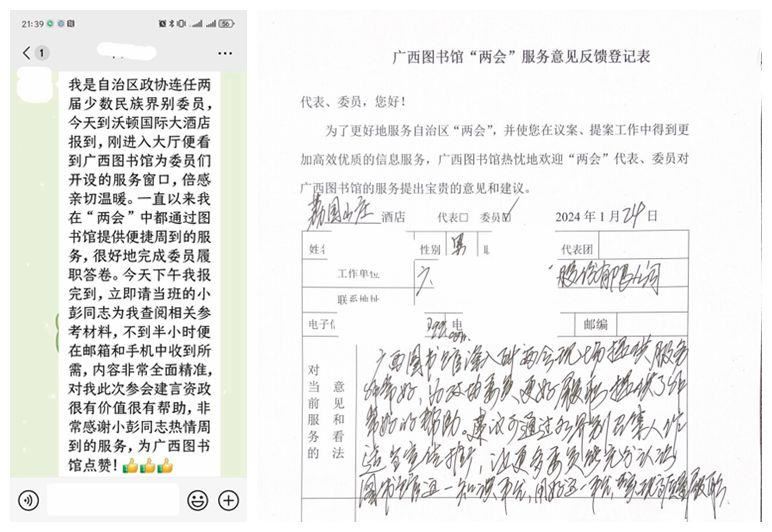 21:39
56
1
我是自治区政协连任两
届少数民族界别委员，
今天到沃顿国际大酒店
报到，刚进入大厅便看
到广西图书馆为委员们
开设的服务窗口，倍感
亲切温暖。一直以来我
在“两会”中都通过图
书馆提供便捷周到的服
务，很好地完成委员履
职答卷。今天下午我报
完到，立即请当班的小
彭同志为我查阅相关参
考材料，不到半小时便
在邮箱和手机中收到所
需，内容非常全面精准，
对我此次参会建言资政
很有价值很有帮助，非
常感谢小彭同志热情周
到的服务，为广西图书
馆点赞！👍👍👍
广西图书馆“两会”服务意见反馈登记表
代表、委员，您好！
为了更好地服务自治区“两会”，并使您在议案、提案工作中得到更
加高效优质的信息服务，广西图书馆热忱地欢迎“两会”代表、委员对
广西图书馆的服务提出宝贵的意见和建议。
荔园山庄 酒店 代表□ 委员☑ 2024 年 1 月 24 日
性别 男 代表团
工作单位 股份有限公司
联系地址
电子 电 邮编
对当前服务的意见和看法
广西图书馆深入到两会现场提供服务
非常好，为政协委员更好履职提供了非
常好的帮助。建议可通过
图书馆这一知识